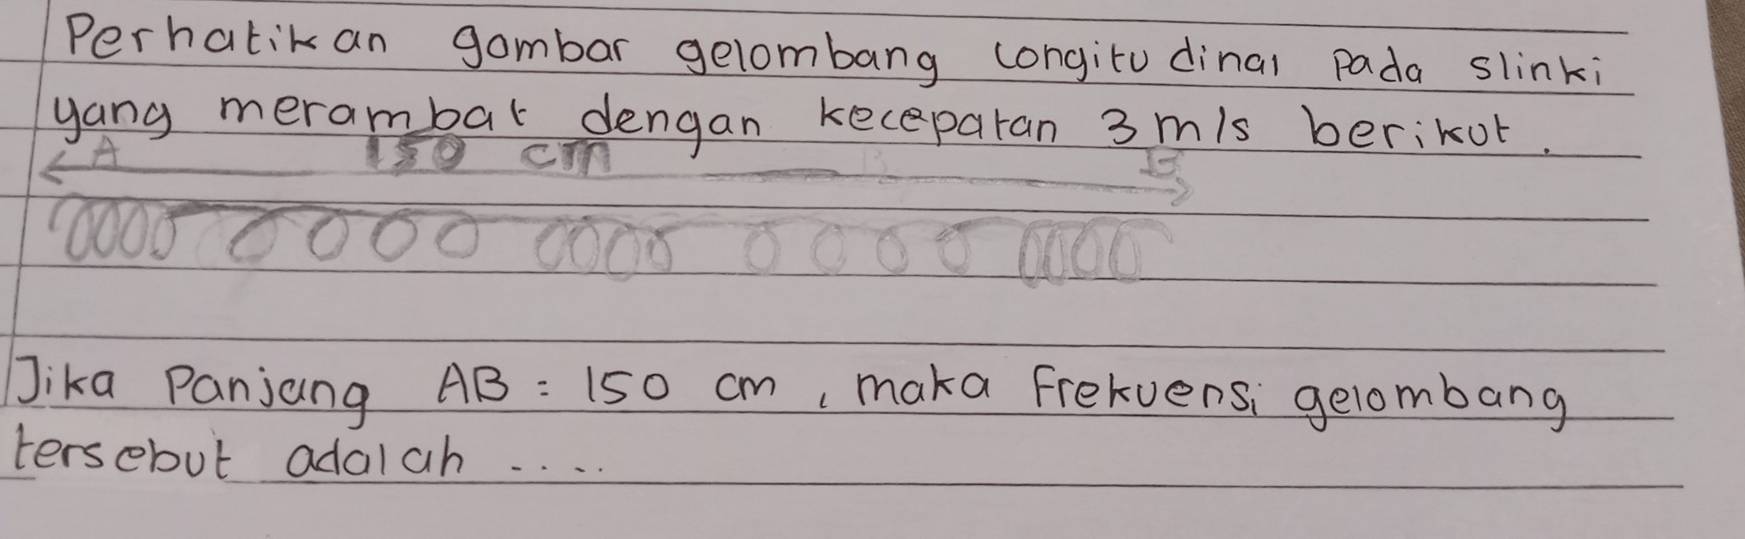 Perhatikan gambar gelombang longitudinal pada slinki
yang merambat dengan kecepatan 3 m/s berikut.
A 150 cm B
Jika Panjang AB = 150 cm, maka Frekuensi gelombang
tersebut adalah ....